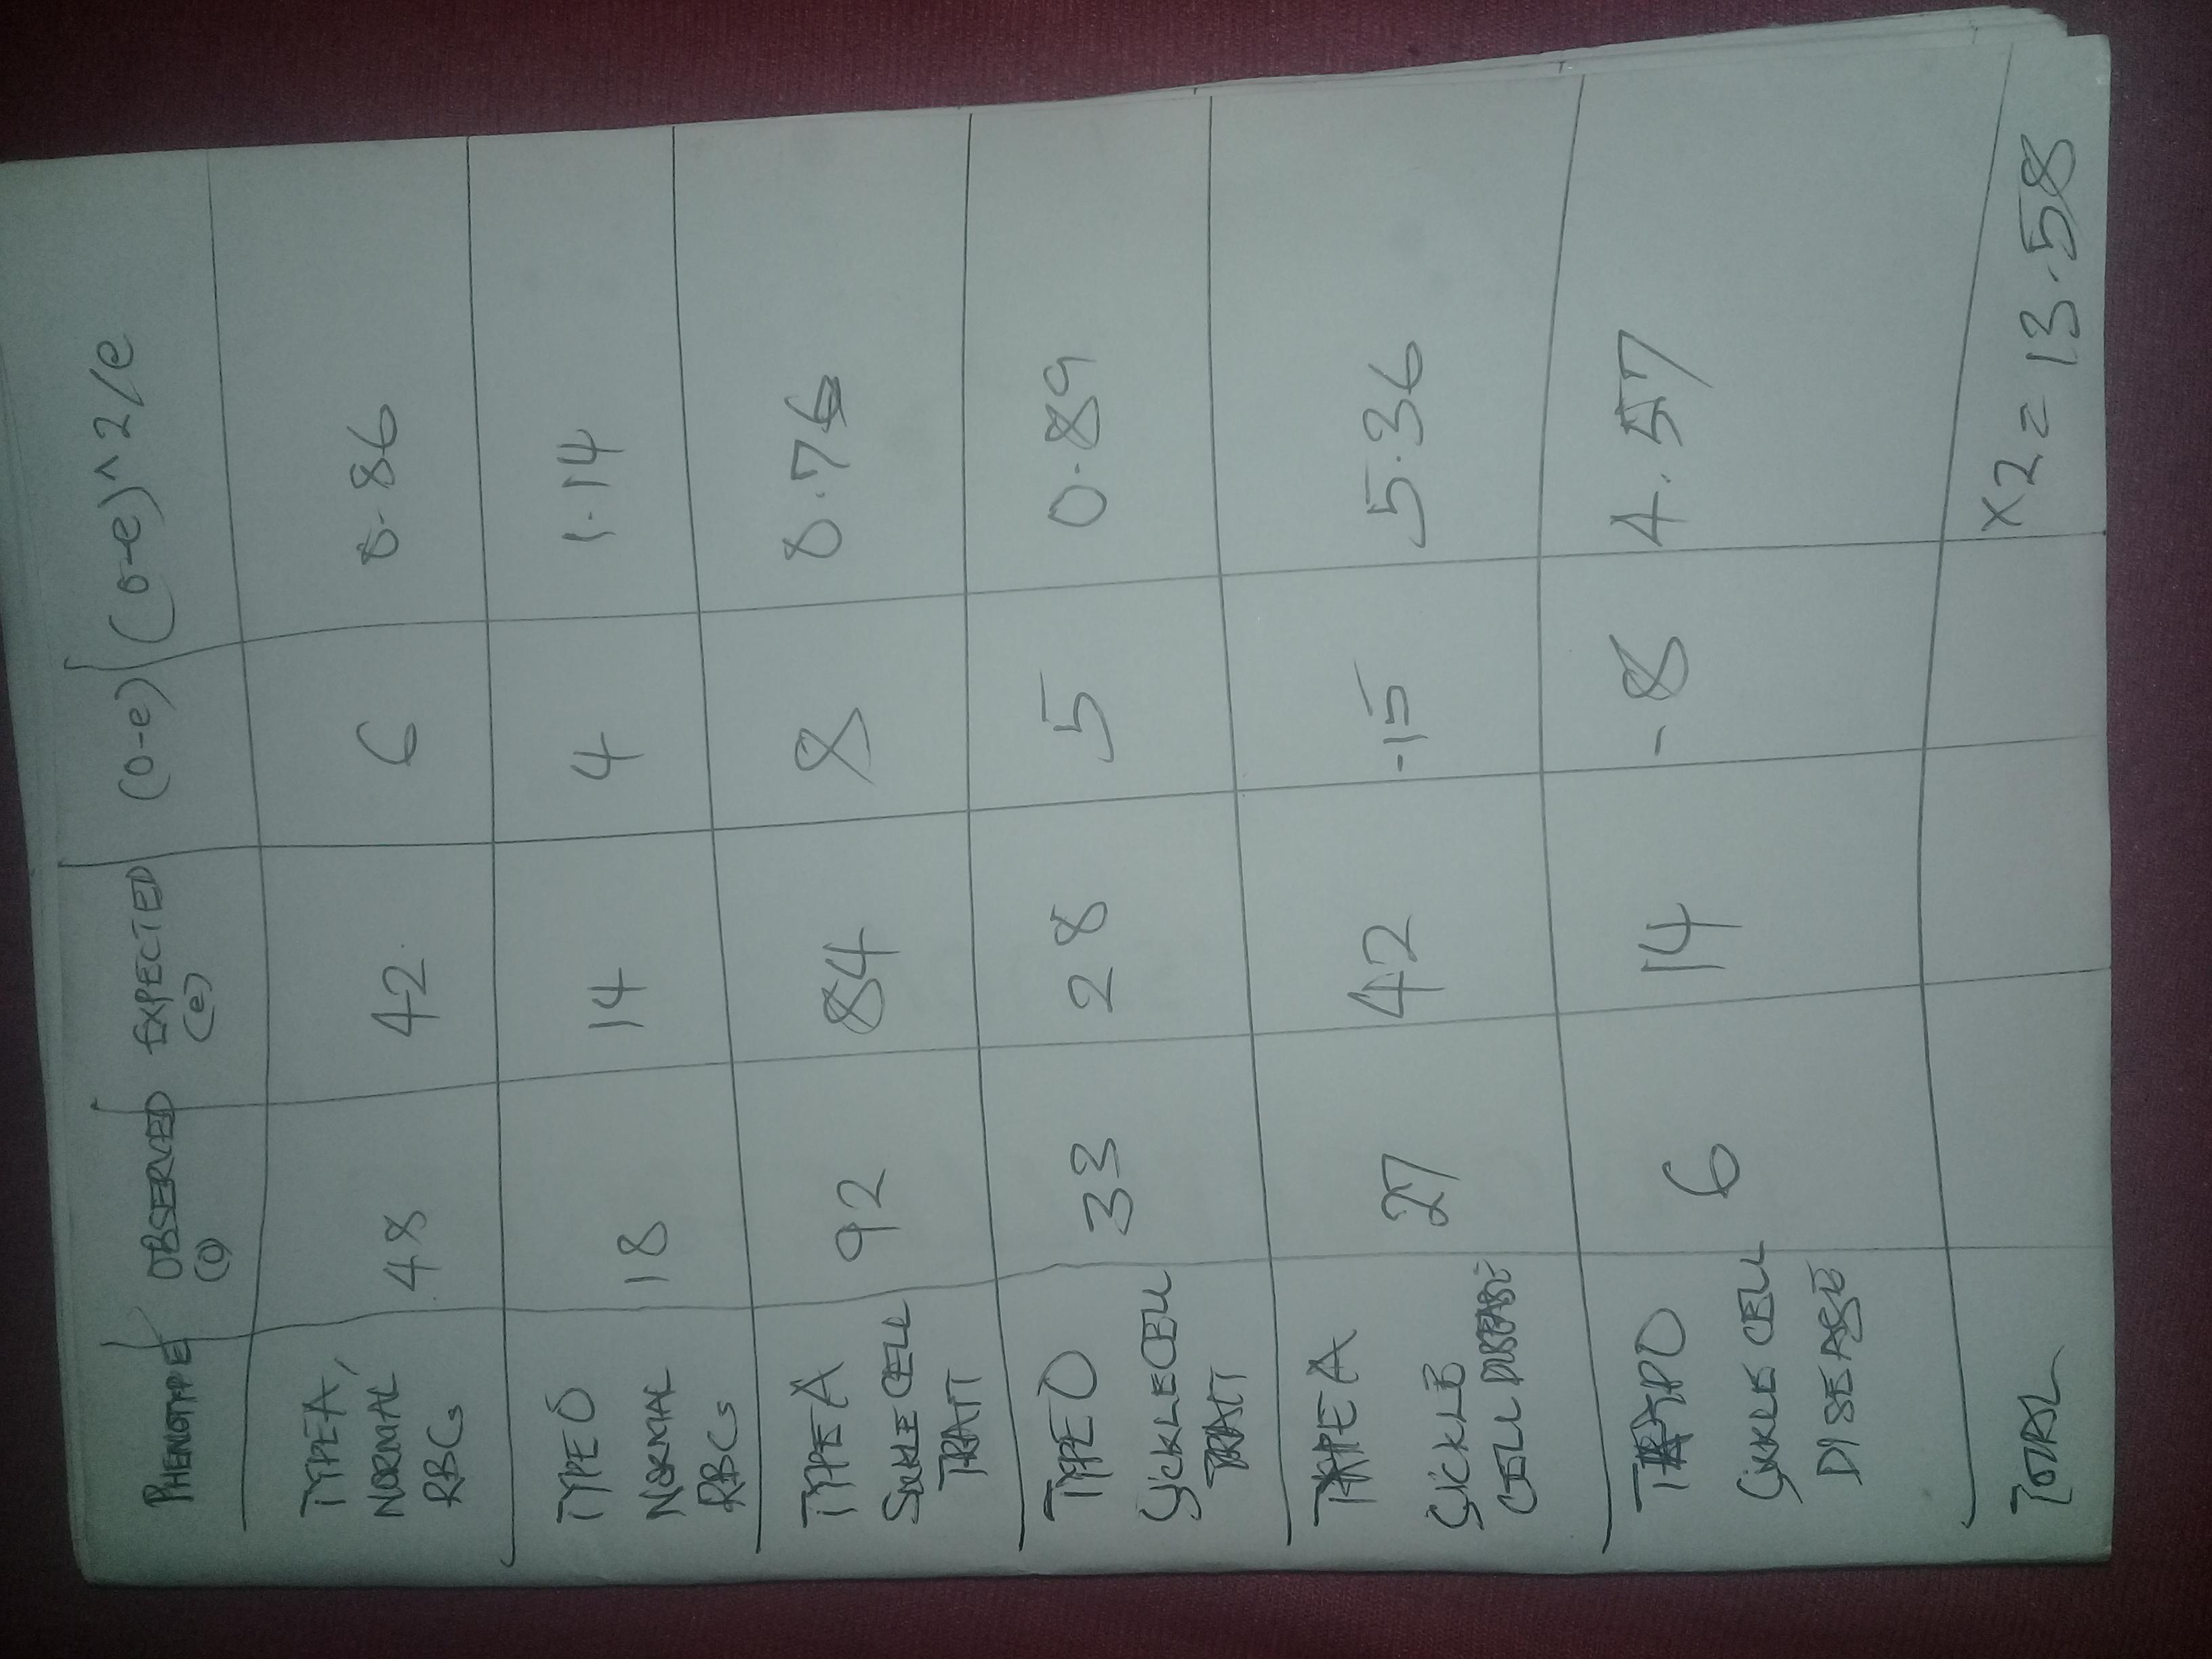 PHENOTYPE OBSERVED (o) EXPECTED (e) (o-e) (o-e)^2/e
TYPE A, NORMAL RBCs 48 42 6 0.86
TYPE O NORMAL RBCs 18 14 4 1.14
TYPE A SICKLE CELL TRAIT 92 84 8 0.76
TYPE O SICKLE CELL TRAIT 33 28 5 0.89
TYPE A SICKLE CELL DISEASE 27 42 -15 5.36
O SICKLE CELL DISEASE 6 14 -8 4.57
TOTAL X2 = 13.58